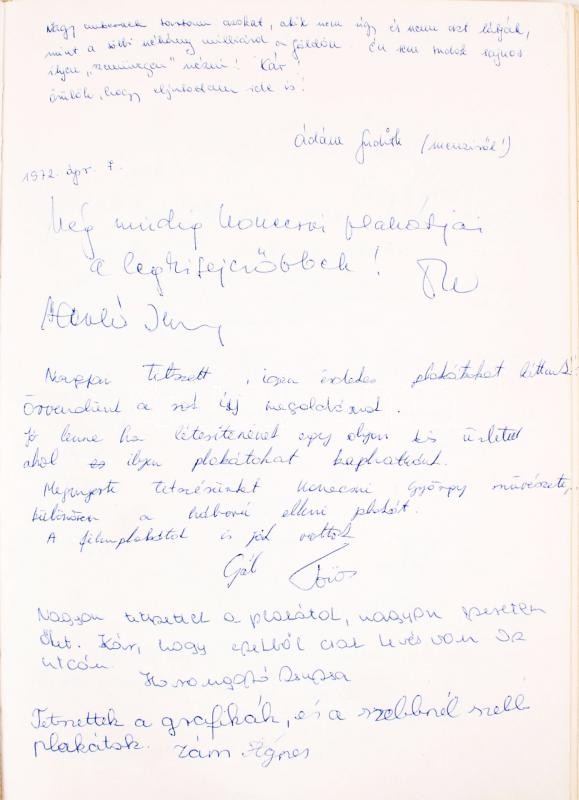 Nagy embernek tartom azokat, akik nem úgy és nem azt látják,
mint a többi néhány milliárd a földön. Én sem tudok sajnos
ilyen „szemüvegen” nézni! Kár.
örülök, hogy eljutottam ide is!
Ádám Judith
1972. ápr. 7.
Még mindig Konecsni plakátjai
a legkifejezőbbek!
Nagyon tetszett, igen érdekes plakátokat láttunk
Örvendünk a sok új megoldásnak.
Jó lenne ha létesítenének egy olyan kis üzletet
ahol ilyen plakátokat kaphatnánk.
Megnyerte tetszésünket Konecsni György művészete,
különösen a háború elleni plakát.
A filmplakátok is jók voltak
Gál
Nagyon tetszettek a plakátok, nagyon szeretem
őket. Kár, hogy ezekből csak kevés van az
utcán.
Zsuzsa
Tetszettek a grafikák, és a szebbnél szebb
plakátok. Zám Ágnes